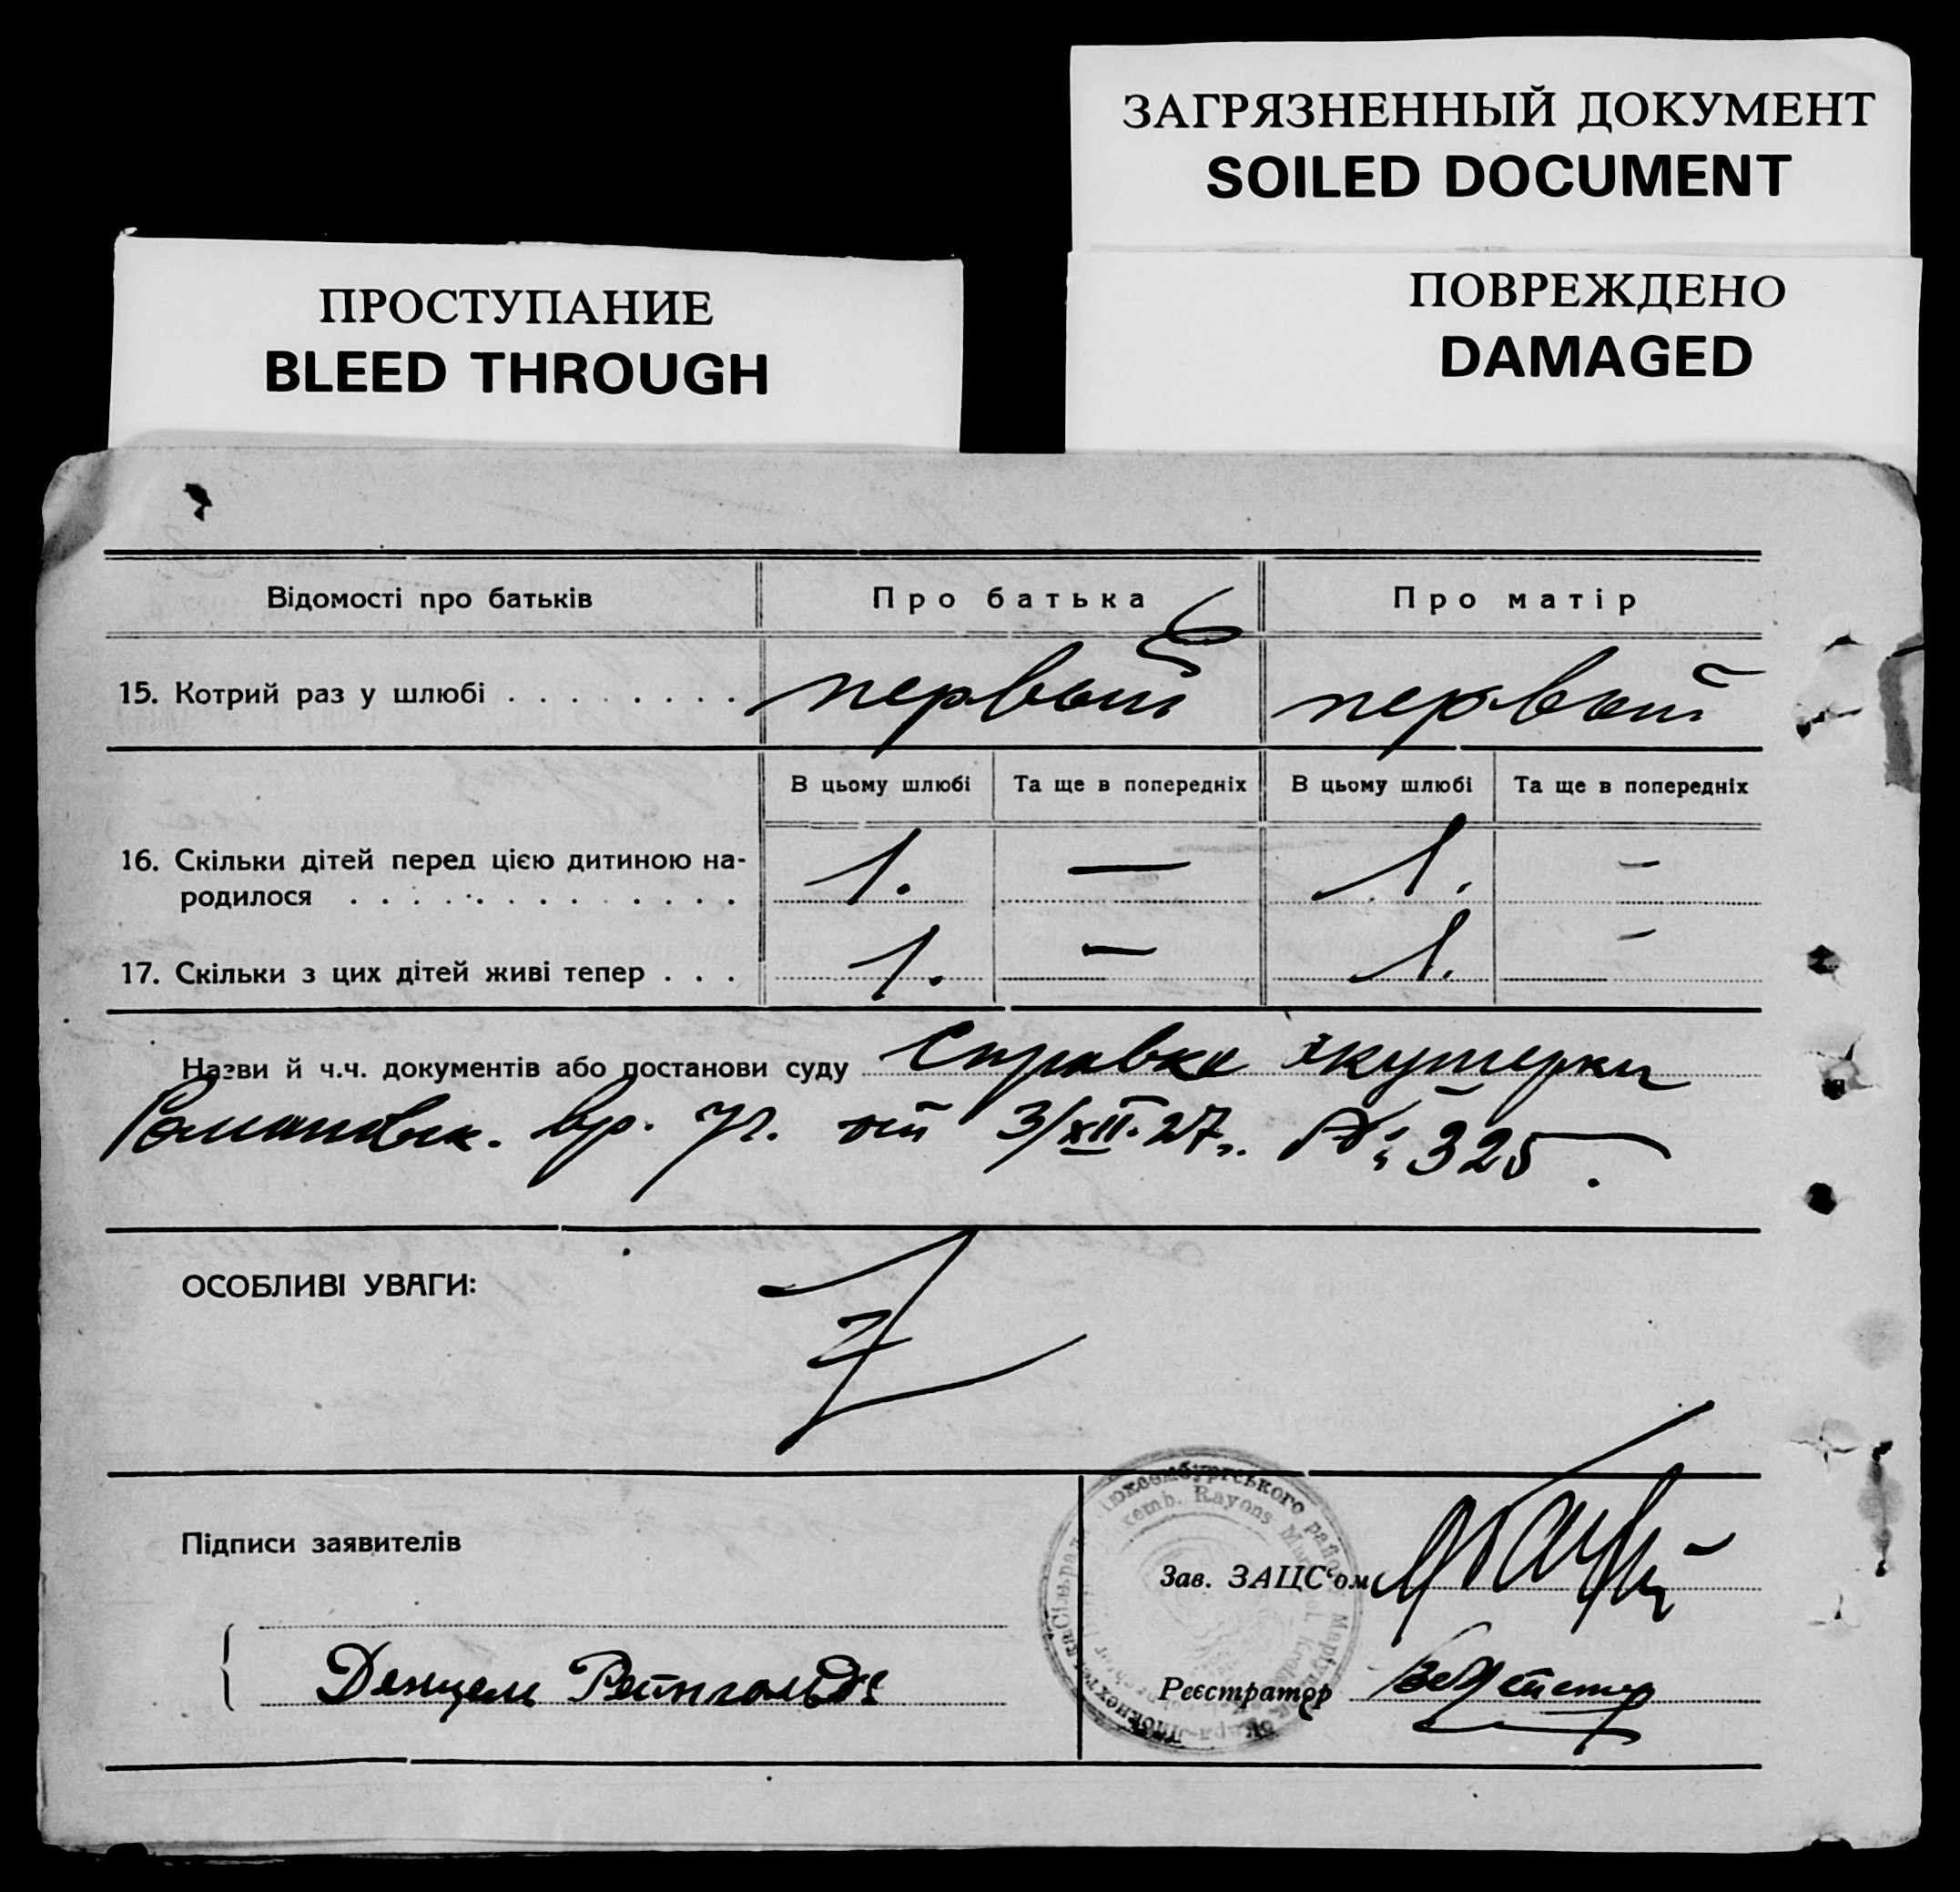 ЗАГРЯЗНЕННЫЙ ДОКУМЕНТ
SOILED DOCUMENT
ПРОСТУПАНИЕ
BLEED THROUGH
ПОВРЕЖДЕНО
DAMAGED
Відомості про батьків Про батька Про матір
15. Котрий раз у шлюбі . . . . . . . . первый первый
В цьому шлюбі Та ще в попередніх В цьому шлюбі Та ще в попередніх
16. Скільки дітей перед цією дитиною на-
родилося . . . . . . . . . . . . . . 1. — 1. —
17. Скільки з цих дітей живі тепер . . . 1. — 1. —
Назви й ч.ч. документів або постанови суду Справка акушерки
Романовск. вр. уч. от 3/XII-27г. №: 325.
ОСОБЛИВІ УВАГИ:
Z
Люксембургського району
Rayons
Підписи заявителів
Зав. ЗАЦС‘ом
Денцель Рейнгольдъ
Реєстратор